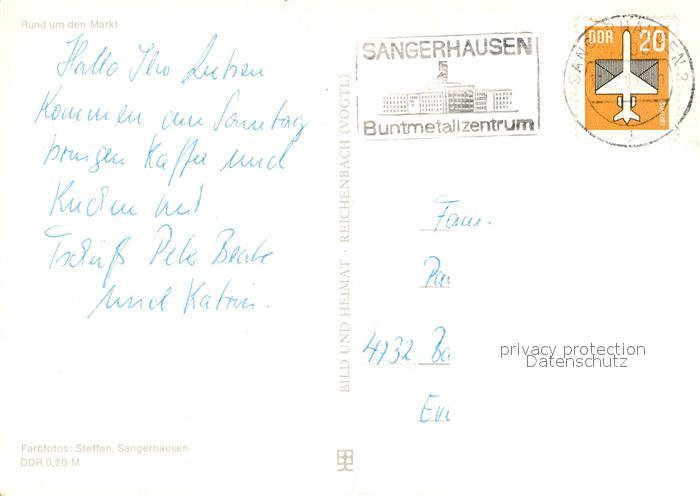 Rund um den Markt
Hallo Ihr Lieben
Kommen am Sonntag
bringen Kaffee und
Kuchen mit
Tschüß Peter Beate
und Katrin.
Farbfotos: Steffen, Sangerhausen
DDR 0,20 M
BILD UND HEIMAT · REICHENBACH (VOGTL)
SANGERHAUSEN
Buntmetallzentrum
DDR 20
SANGERHAUSEN 2
Fam.
Pa
4732 Ba
privacy protection
Datenschutz